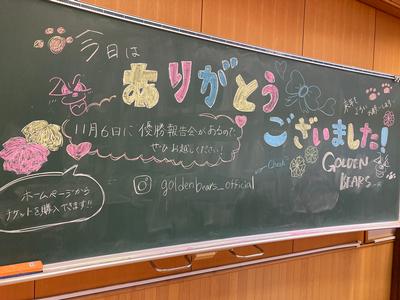 今日は
ありがとう
ございました!
11月6日に優勝報告会があるので、
ぜひお越しください!
goldenbears_official
Check
GOLDEN
BEARS
ホームページから
チケットを購入できます!!